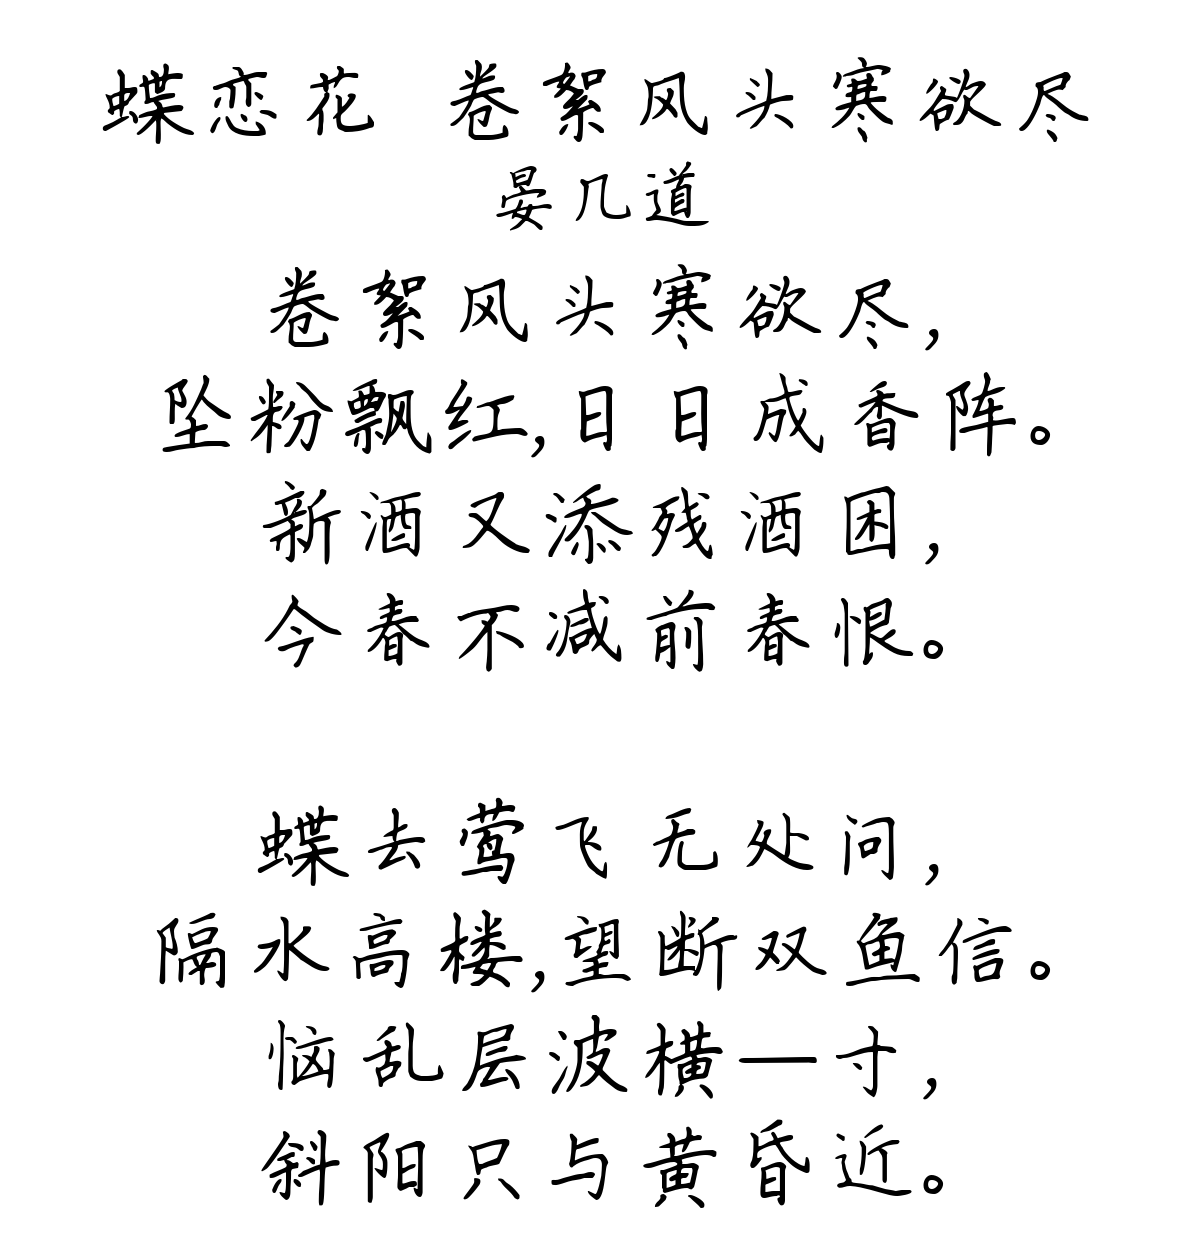 蝶恋花 卷絮风头寒欲尽
晏几道
卷絮风头寒欲尽，
坠粉飘红，日日成香阵。
新酒又添残酒困，
今春不减前春恨。
蝶去莺飞无处问，
隔水高楼，望断双鱼信。
恼乱层波横一寸，
斜阳只与黄昏近。